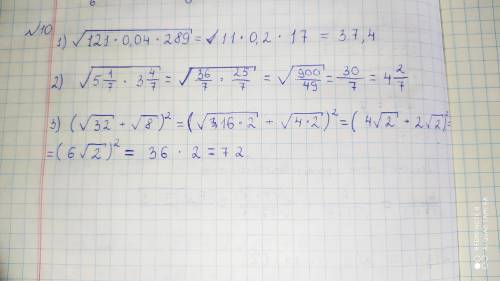 №10
1) √121·0,04·289 = √11·0,2·17 = 37,4
2) √5 1/7 · 3 4/7 = √36/7 · 25/7 = √900/49 = 30/7 = 4 2/7
3) (√32 + √8)² = (√16·2 + √4·2)² = (4√2 + 2√2)² =
= (6√2)² = 36 · 2 = 72